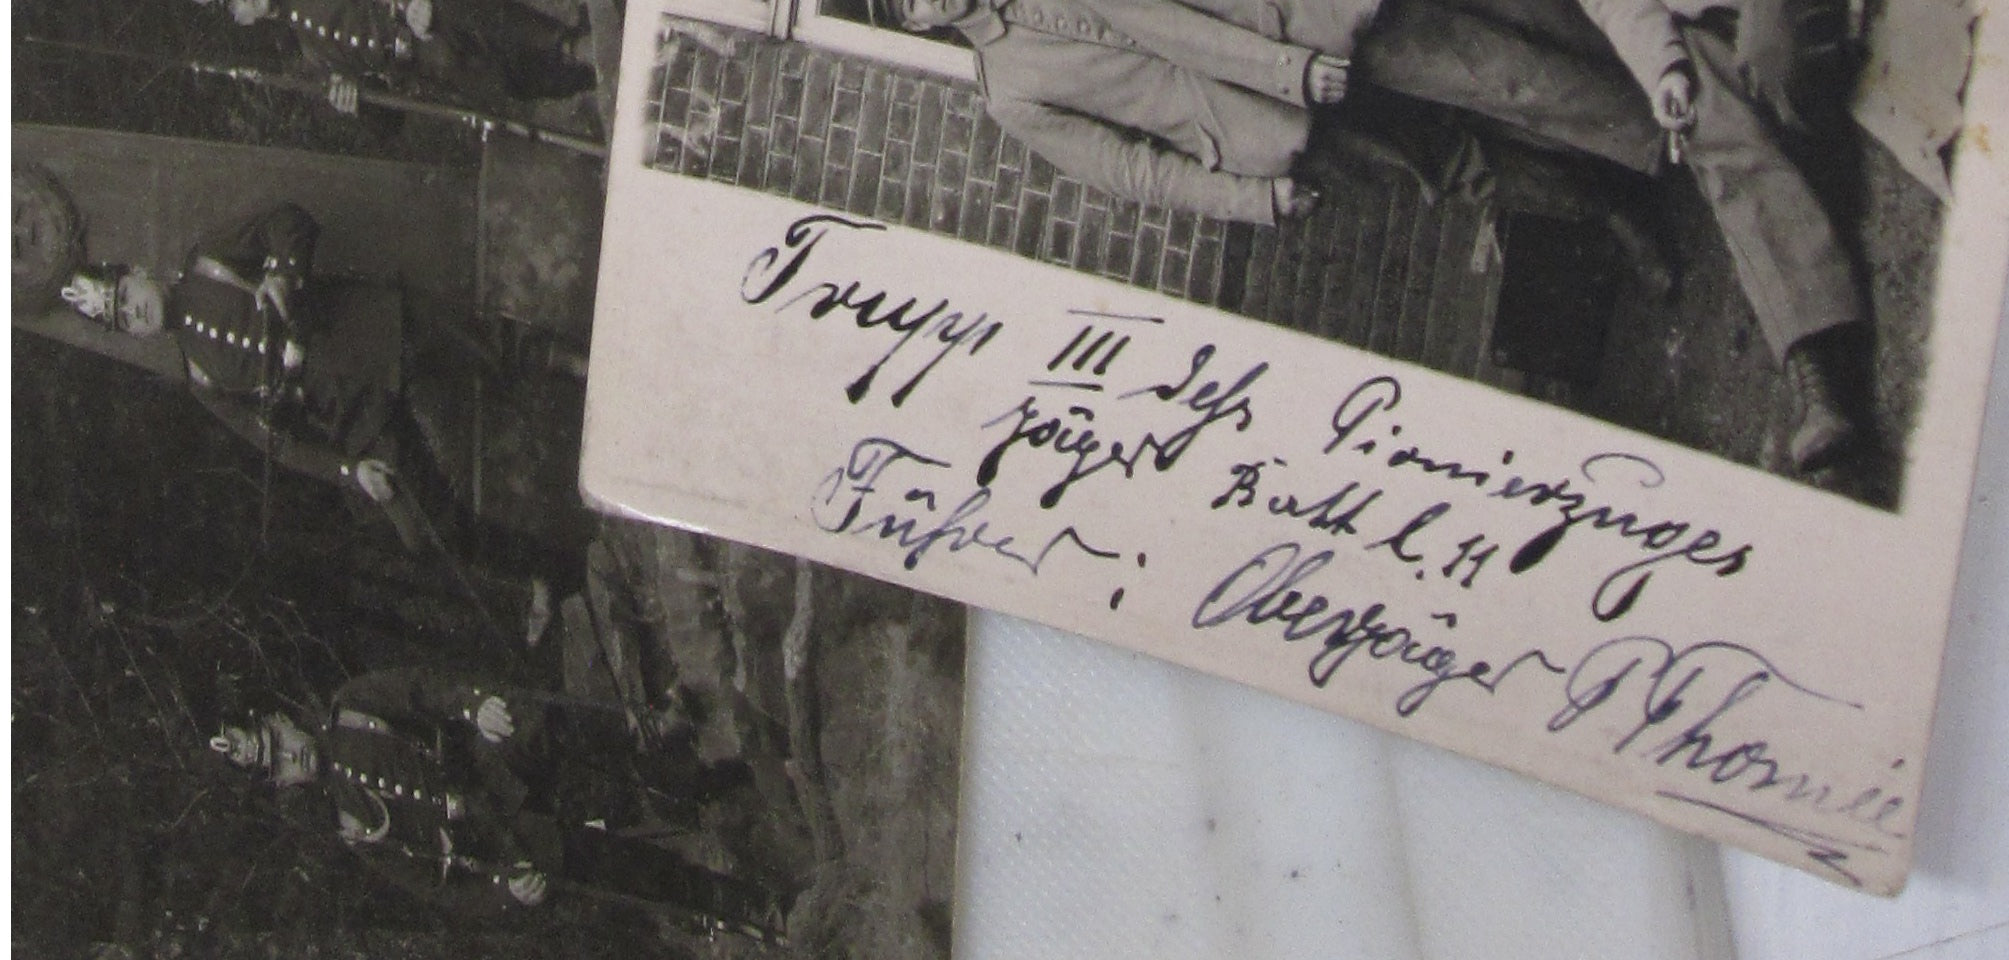 Trupp III des Pionierzuges
Jäger Batl l. 11
Führer: Oberjäger P Thomée